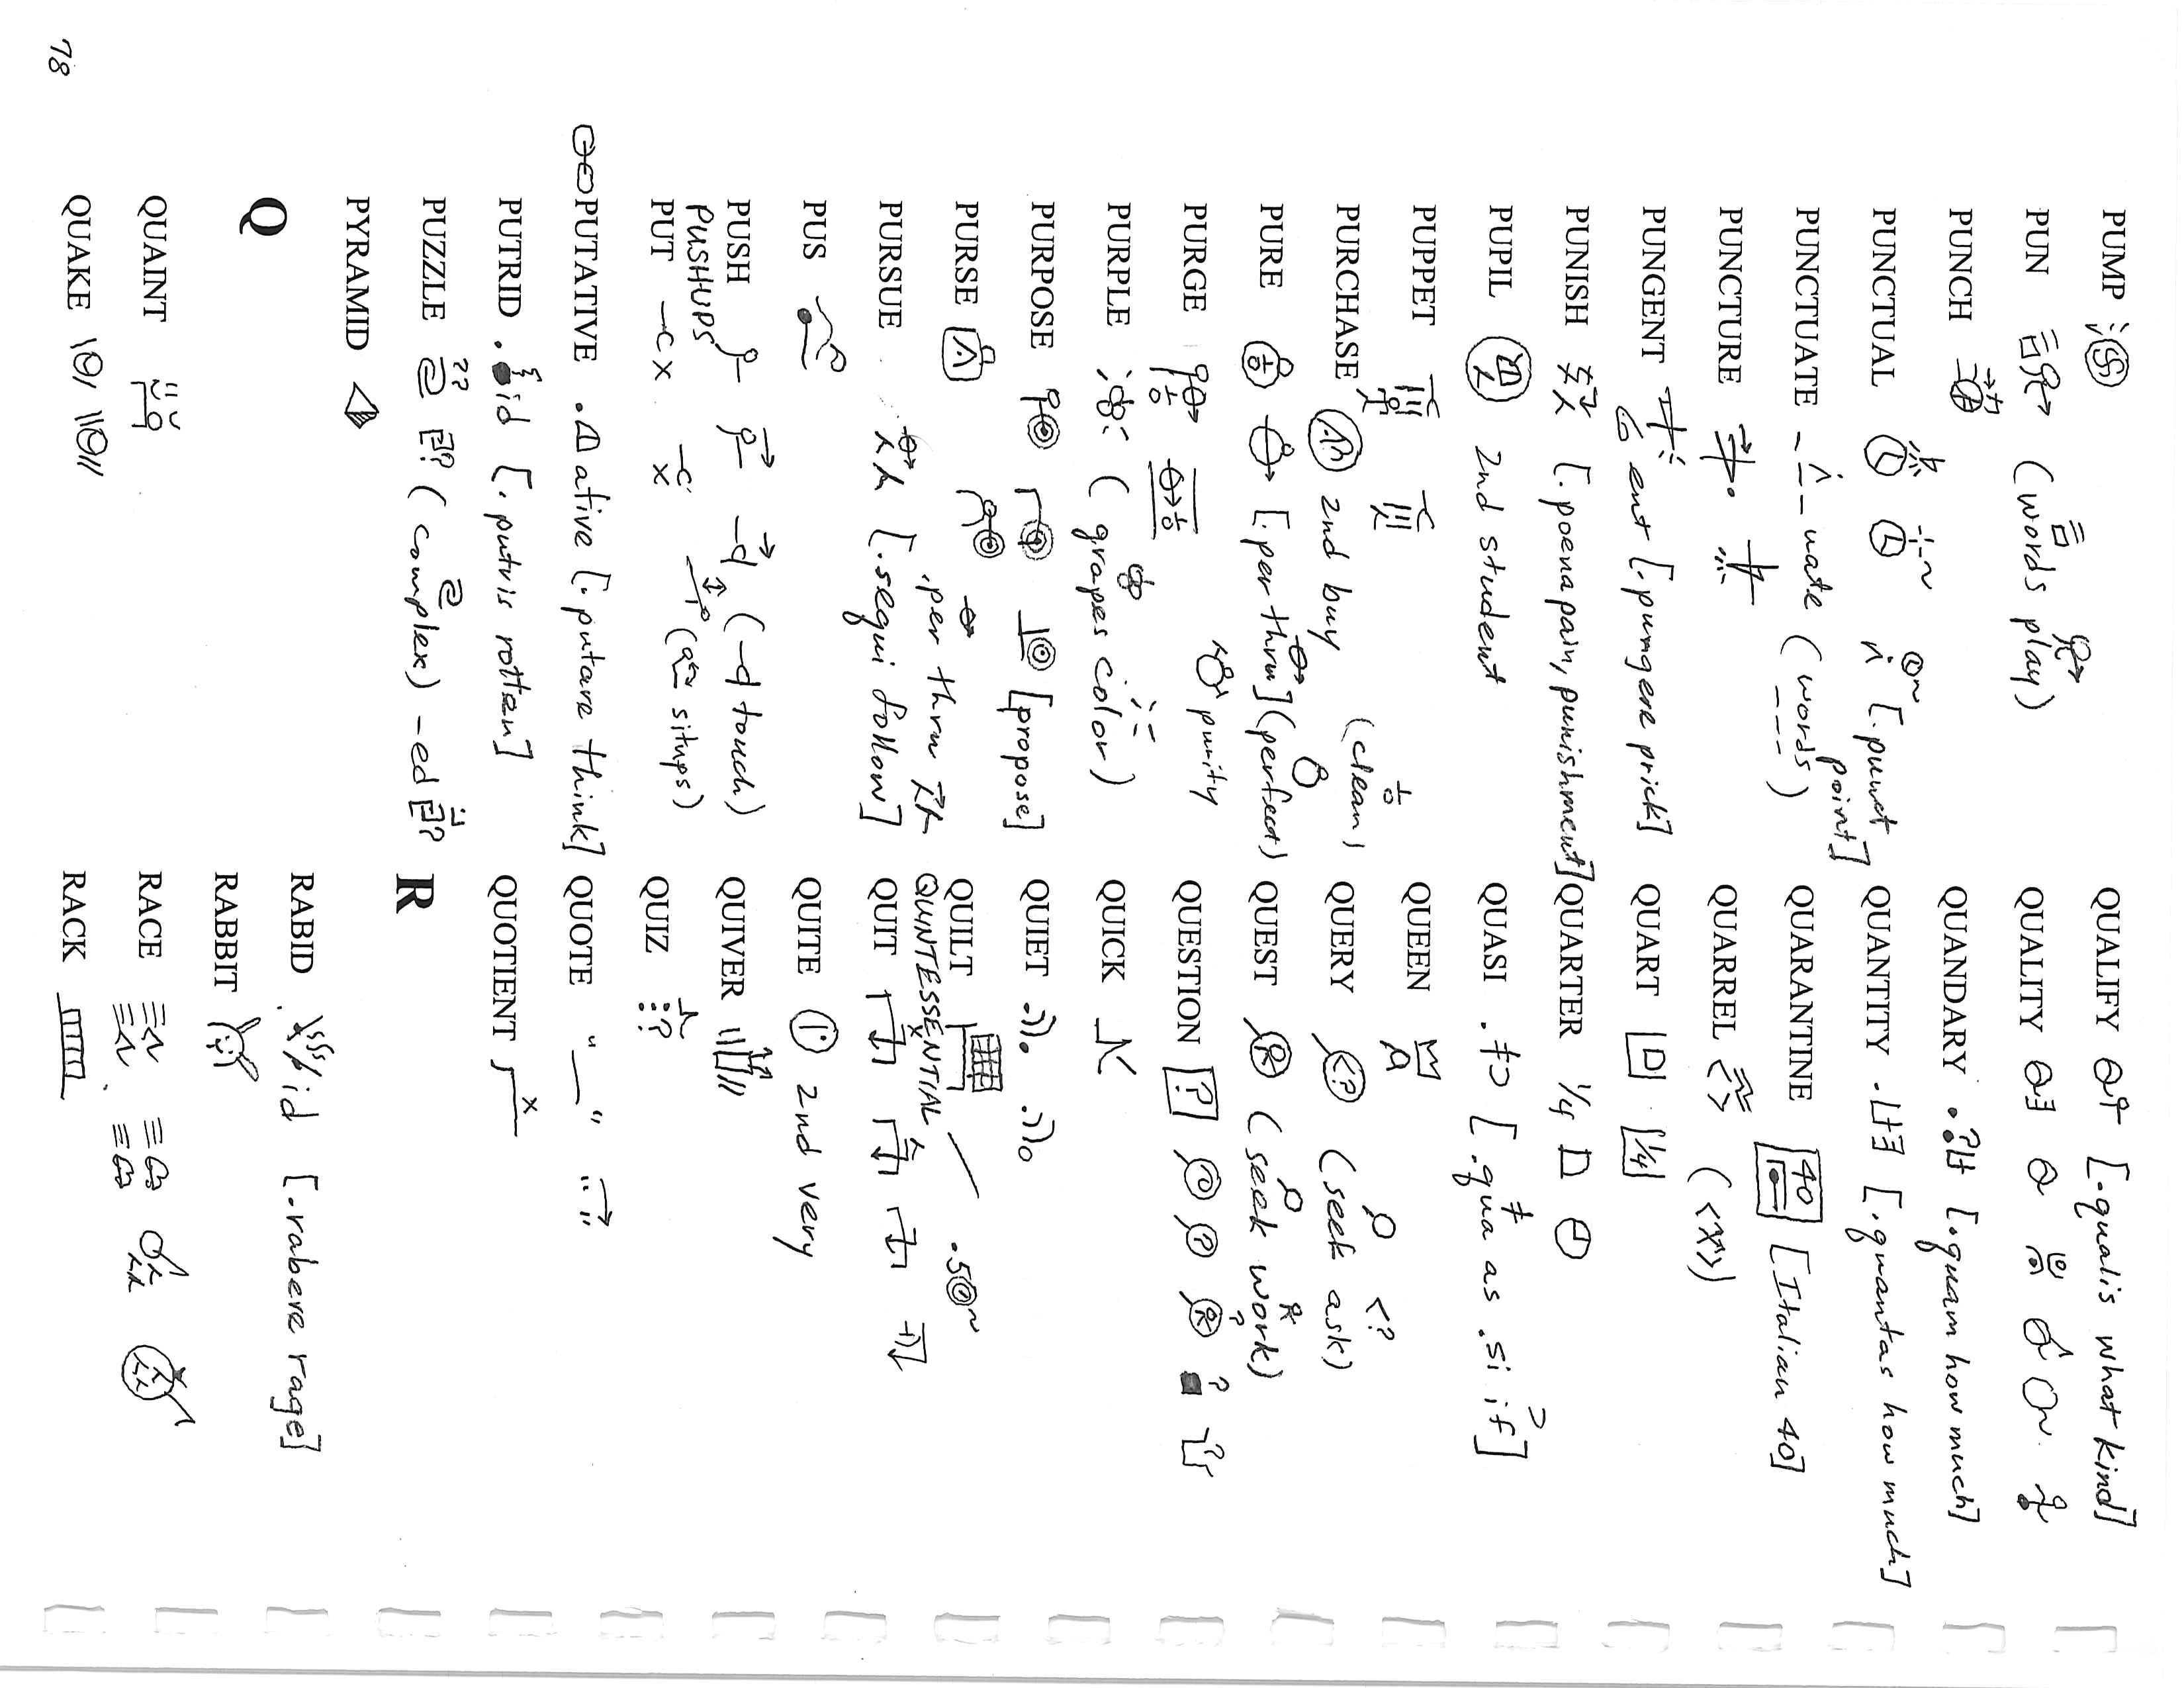 PUMP
PUN (words play)
PUNCH
PUNCTUAL [.punct point]
PUNCTUATE uate (words)
PUNCTURE
PUNGENT ent [.pungere prick]
PUNISH [.poena pain, punishment]
PUPIL 2nd student
PUPPET
PURCHASE 2nd buy (clean)
PURE [.per thru] (perfect)
PURGE purity
PURPLE (grapes color)
PURPOSE [propose]
PURSE .per thru
PURSUE [.sequi follow]
PUS
PUSH (-d touch)
PUSHUPS
PUT (situps)
PUTATIVE ative [.putare think]
PUTRID id [.putris rotten]
PUZZLE ?? ? (complex) -ed ?
PYRAMID
Q
QUAINT
QUAKE
QUALIFY [.qualis what kind]
QUALITY
QUANDARY .? [.quam how much]
QUANTITY [.quantas how much]
QUARANTINE 40 [Italian 40]
QUARREL
QUART 1/4
QUARTER 1/4
QUASI [.qua as .si if]
QUEEN
QUERY (seek ask)
QUEST (seek work)
QUESTION ?
QUICK
QUIET
QUILT
QUINTESSENTIAL .5
QUIT
QUITE 2nd very
QUIVER
QUIZ ??
QUOTE " "
QUOTIENT x
R
RABID id [.rabere rage]
RABBIT
RACE
RACK
78